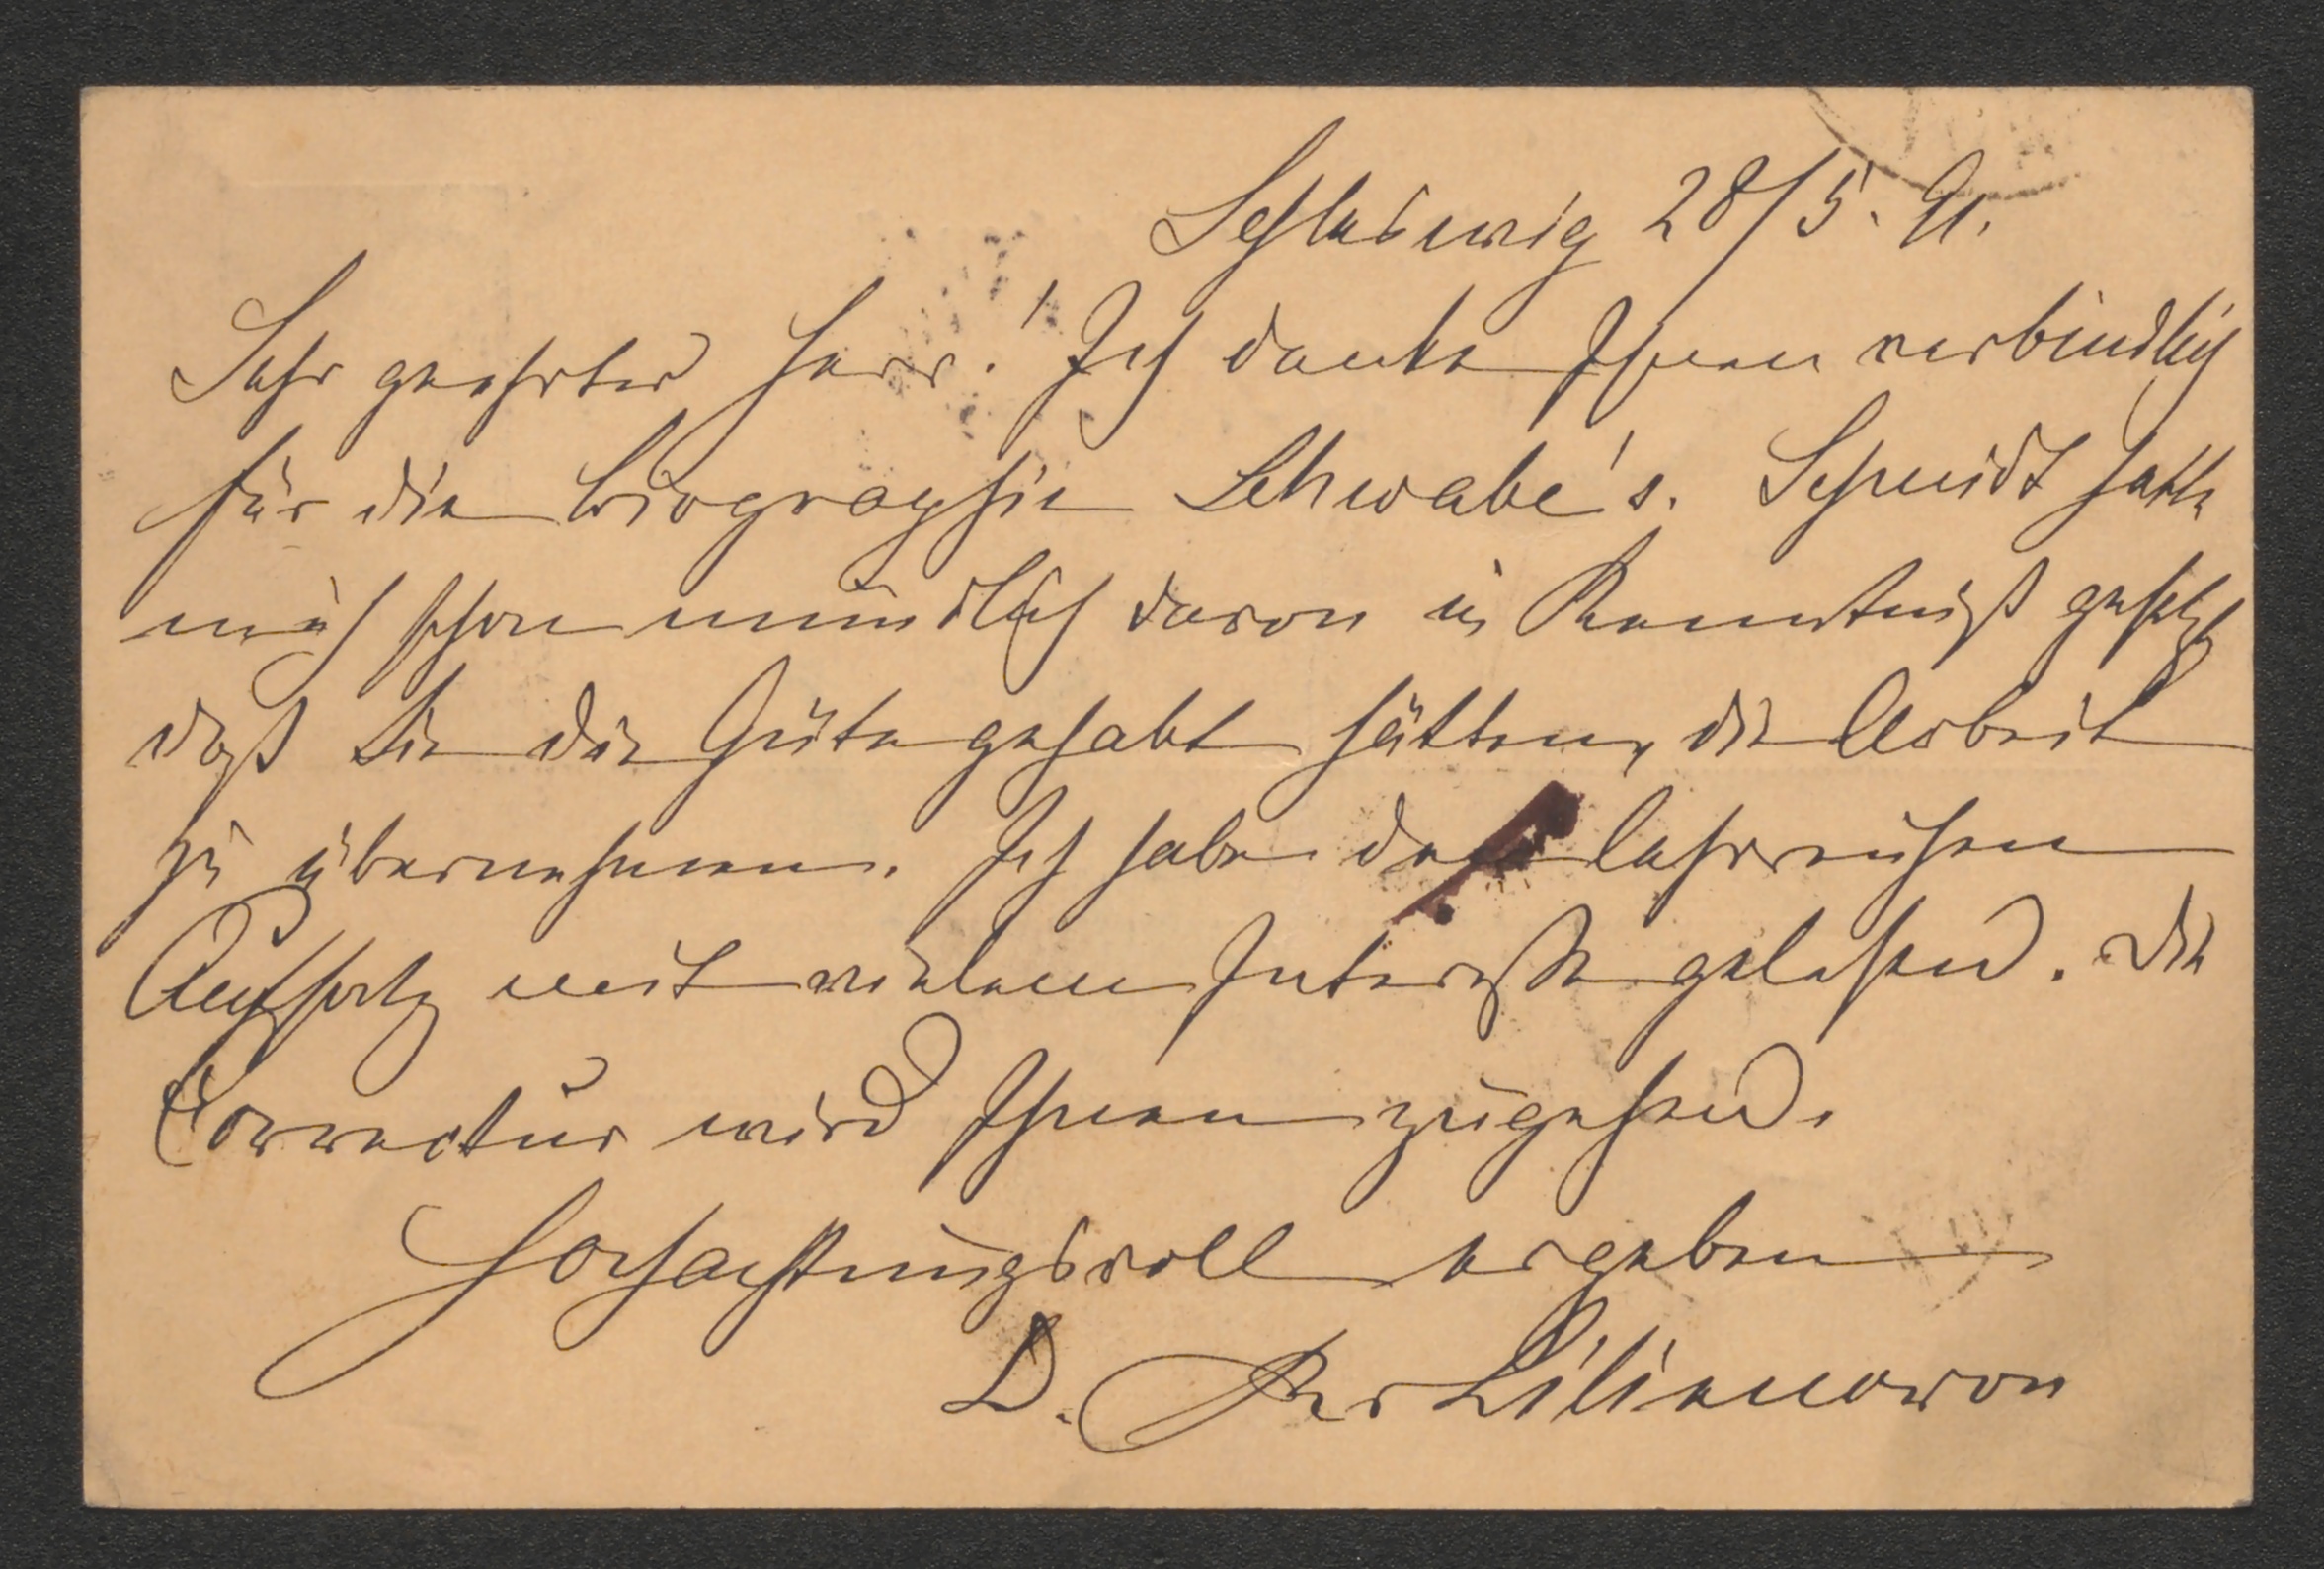 Schleswig 28/5. 91.
Sehr geehrter Herr! Ich danke Ihnen verbindlich
für die Biographie Schwabe's. Schmidt hatte
mich schon mündlich davon in Kenntniß gesetzt
daß Sie die Güte gehabt hätten, die Arbeit
zu übernehmen. Ich habe den lehrreichen
Aufsatz mit vielem Interesse gelesen. Die
Correctur wird Ihnen zugehen.
Hochachtungsvoll ergeben
D. Liliencron